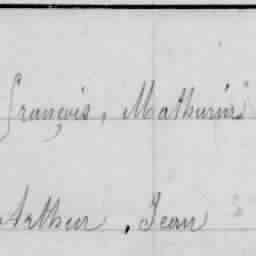 François, Mathurin
Arthur, Jean